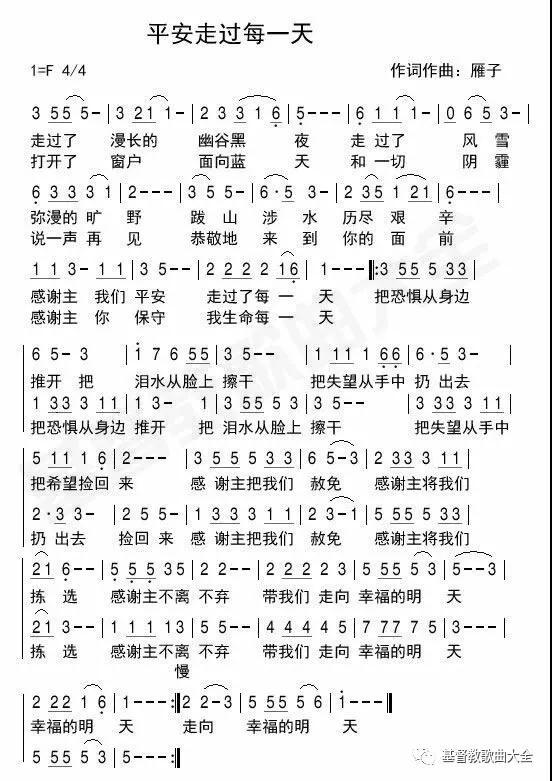 平安走过每一天
1=F 4/4 作词作曲：雁子
3 5 5 5- | 3 3 2 1 1- | 2 3 3 1 6 | 5--- | 6 1 1 1- | 0 6 5 3 |
走过了 漫长的 幽谷黑 夜 走过了 风雪
打开了 窗户 面向蓝 天 和一切 阴霾
6 3 3 3 1 | 2--- | 3 5-3 | 6·5 3- | 2 3 5 1 2 1 | 6--- |
弥漫的旷 野 跋山 涉水 历尽艰 辛
说一声再 见 恭敬地 来到 你的面 前
1 1 3-1 | 3 5-- | 2 2 2 2 2 1 6 | 1---‖: 3 5 5 5 3 3 |
感谢主 我们平安 走过了每一 天 把恐惧从身边
感谢主 你 保守 我生命每一 天
6 5-3 | 1 7 6 5 5 | 3 5-- | 1 1 1 1 6 6 | 6·5 3- |
推开 把 泪水从脸上 擦干 把失望从手中 扔出去
1 3 3 3 1 1 | 1 3-1 | 3 5 3 3 3 | 1 3-- | 3 3 3 3 1 1 |
把恐惧从身边 推开 把 泪水从脸上 擦干 把失望从手中
5 1 1 1 6 | 2--- | 3 5 5 5 3 3 | 6 5-3 | 2 3 3 3 2 2 |
把希望捡回 来 感 谢主把我们 赦免 感谢主将我们
2·3 3- | 2 5 5- | 1 3 3 3 1 1 | 2 3-1 | 5 5 5 5 5 5 |
扔 出去 捡回 来 感 谢主把我们 赦免 感谢主将我们
2 1 6- | 5 5 5 3 5 | 2 2-- | 2 2 2 2 3 | 5 5 5 3 | 5--3 |
拣 选 感谢主不离 不弃 带我们 走向 幸福的明 天
2 1 3- | 1 1 1 1 3 | 5 5-- | 4 4 4 4 5 | 7 7 7 5 | 2--- |
拣 选 感谢主不离 不弃 带我们 走向 幸福的明 天
慢
2 2 2 1 6 | 1---:‖ 2 2-3 | 5 5 5 6 | 1---‖
幸福的明 天 走向 幸福的明 天
5 5 5 3 | 5---:‖
基督教歌曲大全